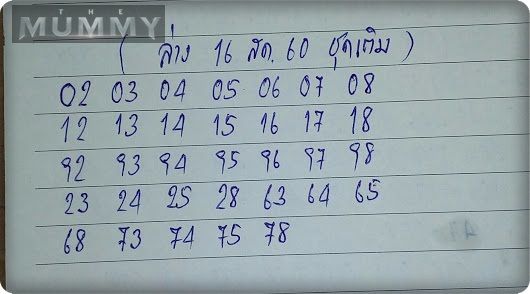 THE
MUMMY
( ล่าง 16 สด. 60 ชุดเติม )
02 03 04 05 06 07 08
12 13 14 15 16 17 18
92 93 94 95 96 97 98
23 24 25 28 63 64 65
68 73 74 75 78